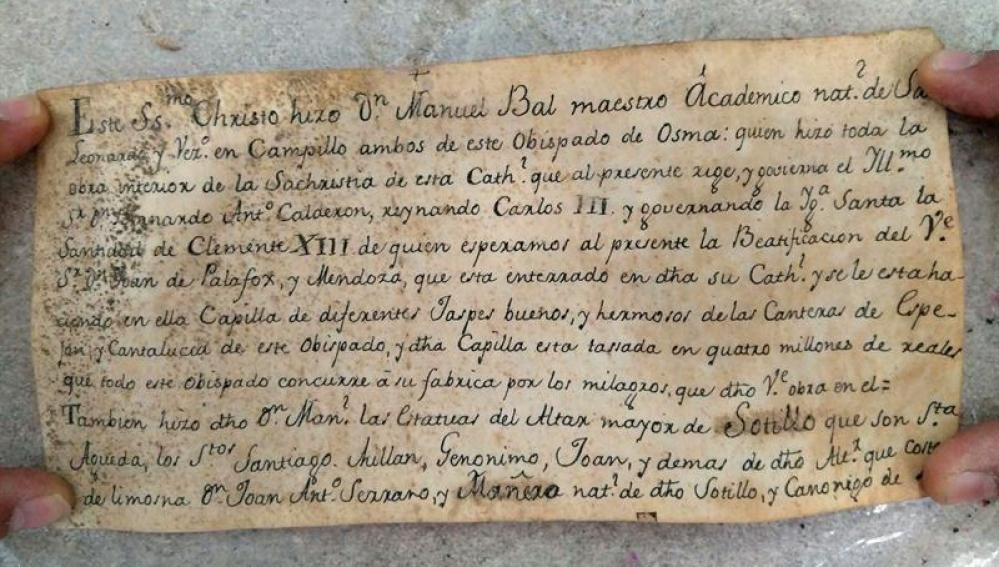 Este Ss.mo Christo hizo Dn Manuel Bal maestro Académico nat.l de Sn
Leonardo y Vez.o en Campillo ambos de este Obispado de Osma: quien hizo toda la
obra interior de la Sachristia de esta Cath.l que al presente rige, y govierna el Yll.mo
Sr. Dn. Bernardo Ant.o Calderon, reynando Carlos III. y governando la Yg.a Santa la
Santidad de Clemente XIII. de quien esperamos al presente la Beatificacion del V.e
Sr. Dn. Joan de Palafox, y Mendoza, que esta enterrado en dha su Cath.l y se le esta ha-
ciendo en ella Capilla de diferentes Jaspes buenos, y hermosos de las Canteras de Espe-
jon, y Cantalucia de este Obispado, y dha Capilla esta tassada en quatro millones de reales
que todo este obispado concurre a su fabrica por los milagros, que dho V.e obra en el=
Tambien hizo dho Dn Man.l las Estatuas del Altar mayor de Sotillo que son S.ta
Agueda, los S.tos Santiago. Millan, Geronimo, Joan, y demas de dho Alt.r que costeo
de limosna Dn Joan Ant.o Serrano, y Mañero nat.l de dho Sotillo, y Canonigo de